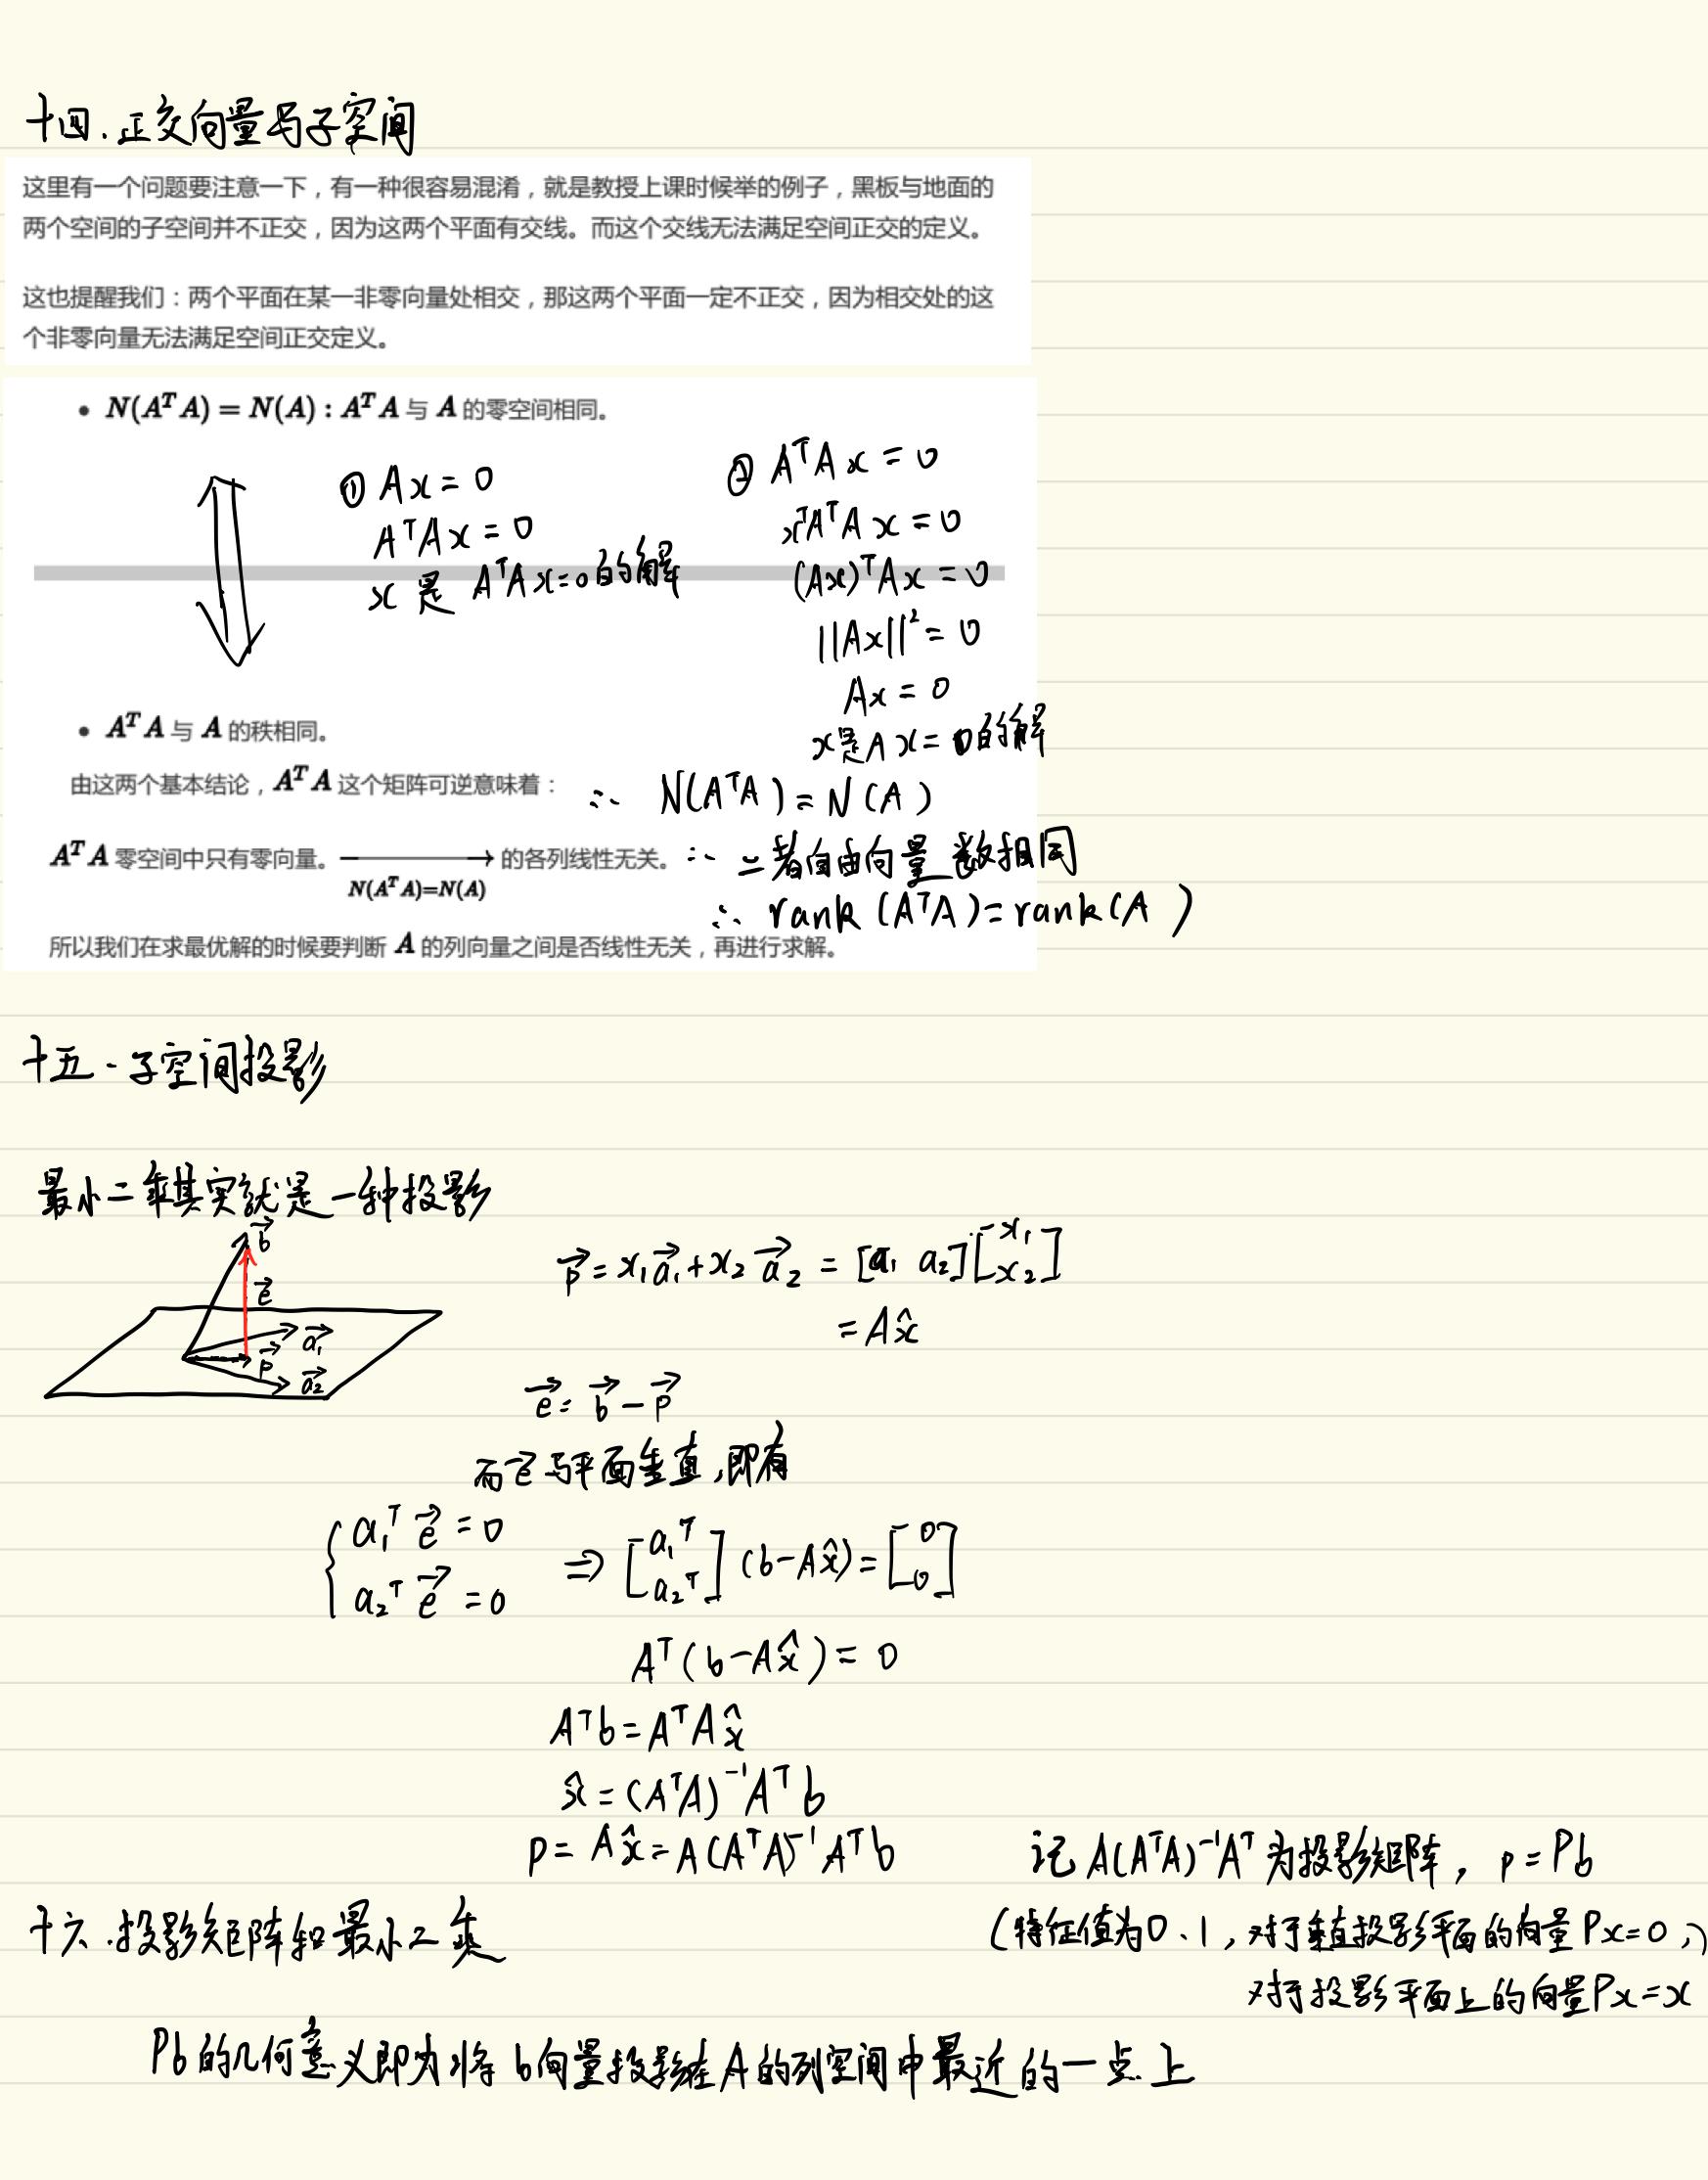 十四.正交向量与子空间
这里有一个问题要注意一下，有一种很容易混淆，就是教授上课时候举的例子，黑板与地面的
两个空间的子空间并不正交，因为这两个平面有交线。而这个交线无法满足空间正交的定义。
这也提醒我们：两个平面在某一非零向量处相交，那这两个平面一定不正交，因为相交处的这
个非零向量无法满足空间正交定义。
• N(AᵀA) = N(A) : AᵀA 与 A 的零空间相同。
① Ax = 0
AᵀAx = 0
x 是 AᵀAx=0的解
② AᵀAx = 0
xᵀAᵀAx = 0
(Ax)ᵀAx = 0
||Ax||² = 0
Ax = 0
x是Ax=0的解
• AᵀA 与 A 的秩相同。
由这两个基本结论，AᵀA 这个矩阵可逆意味着：
∴ N(AᵀA) = N(A)
AᵀA 零空间中只有零向量。 ⟶ 的各列线性无关。
N(AᵀA)=N(A)
∵ 二者自由向量数相同
∴ rank(AᵀA)=rank(A)
所以我们在求最优解的时候要判断 A 的列向量之间是否线性无关，再进行求解。
十五.子空间投影
最小二乘其实就是一种投影
b⃗
e⃗
a₁⃗
p⃗
a₂⃗
p⃗ = x₁a₁⃗ + x₂a₂⃗ = [a₁ a₂][x₁ x₂]
= Ax̂
e⃗ = b⃗ - p⃗
而e⃗与平面垂直,即有
{ a₁ᵀe⃗ = 0
a₂ᵀe⃗ = 0
⇒ [a₁ᵀ a₂ᵀ](b-Ax̂) = [0 0]
Aᵀ(b-Ax̂) = 0
Aᵀb = AᵀAx̂
x̂ = (AᵀA)⁻¹Aᵀb
p = Ax̂ = A(AᵀA)⁻¹Aᵀb
记 A(AᵀA)⁻¹Aᵀ 为投影矩阵, p = Pb
(特征值为0、1,对于垂直投影平面的向量Px=0,)
对于投影平面上的向量Px=x
十六.投影矩阵和最小二乘
Pb的几何意义即为将b向量投影在A的列空间中最近的一点上